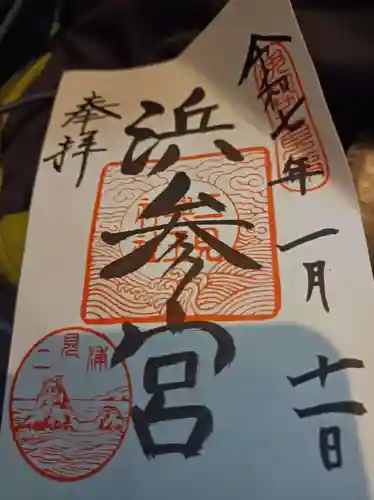 令和七年
一月
十一日
浜参宮
奉拝
二見
二見浦